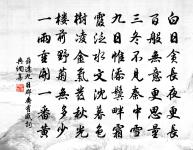 白日貪長夜更長
百般無意更思量
三冬不見秦中雪
九日惟添鬢畔霜
霞泛水文沈暮色
樹凌金氣發秋光
樓前野菊無多少
一雨重開一番黃
薛逢九日郡齋有感